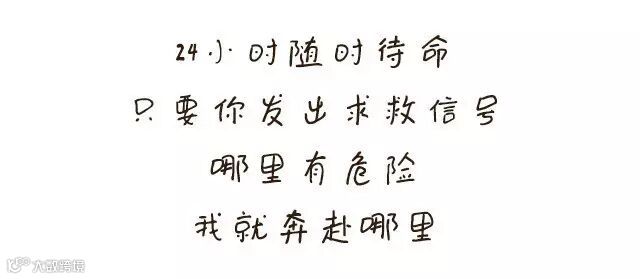 24小时随时待命
只要你发出求救信号
哪里有危险
我就奔赴哪里
大数跨境